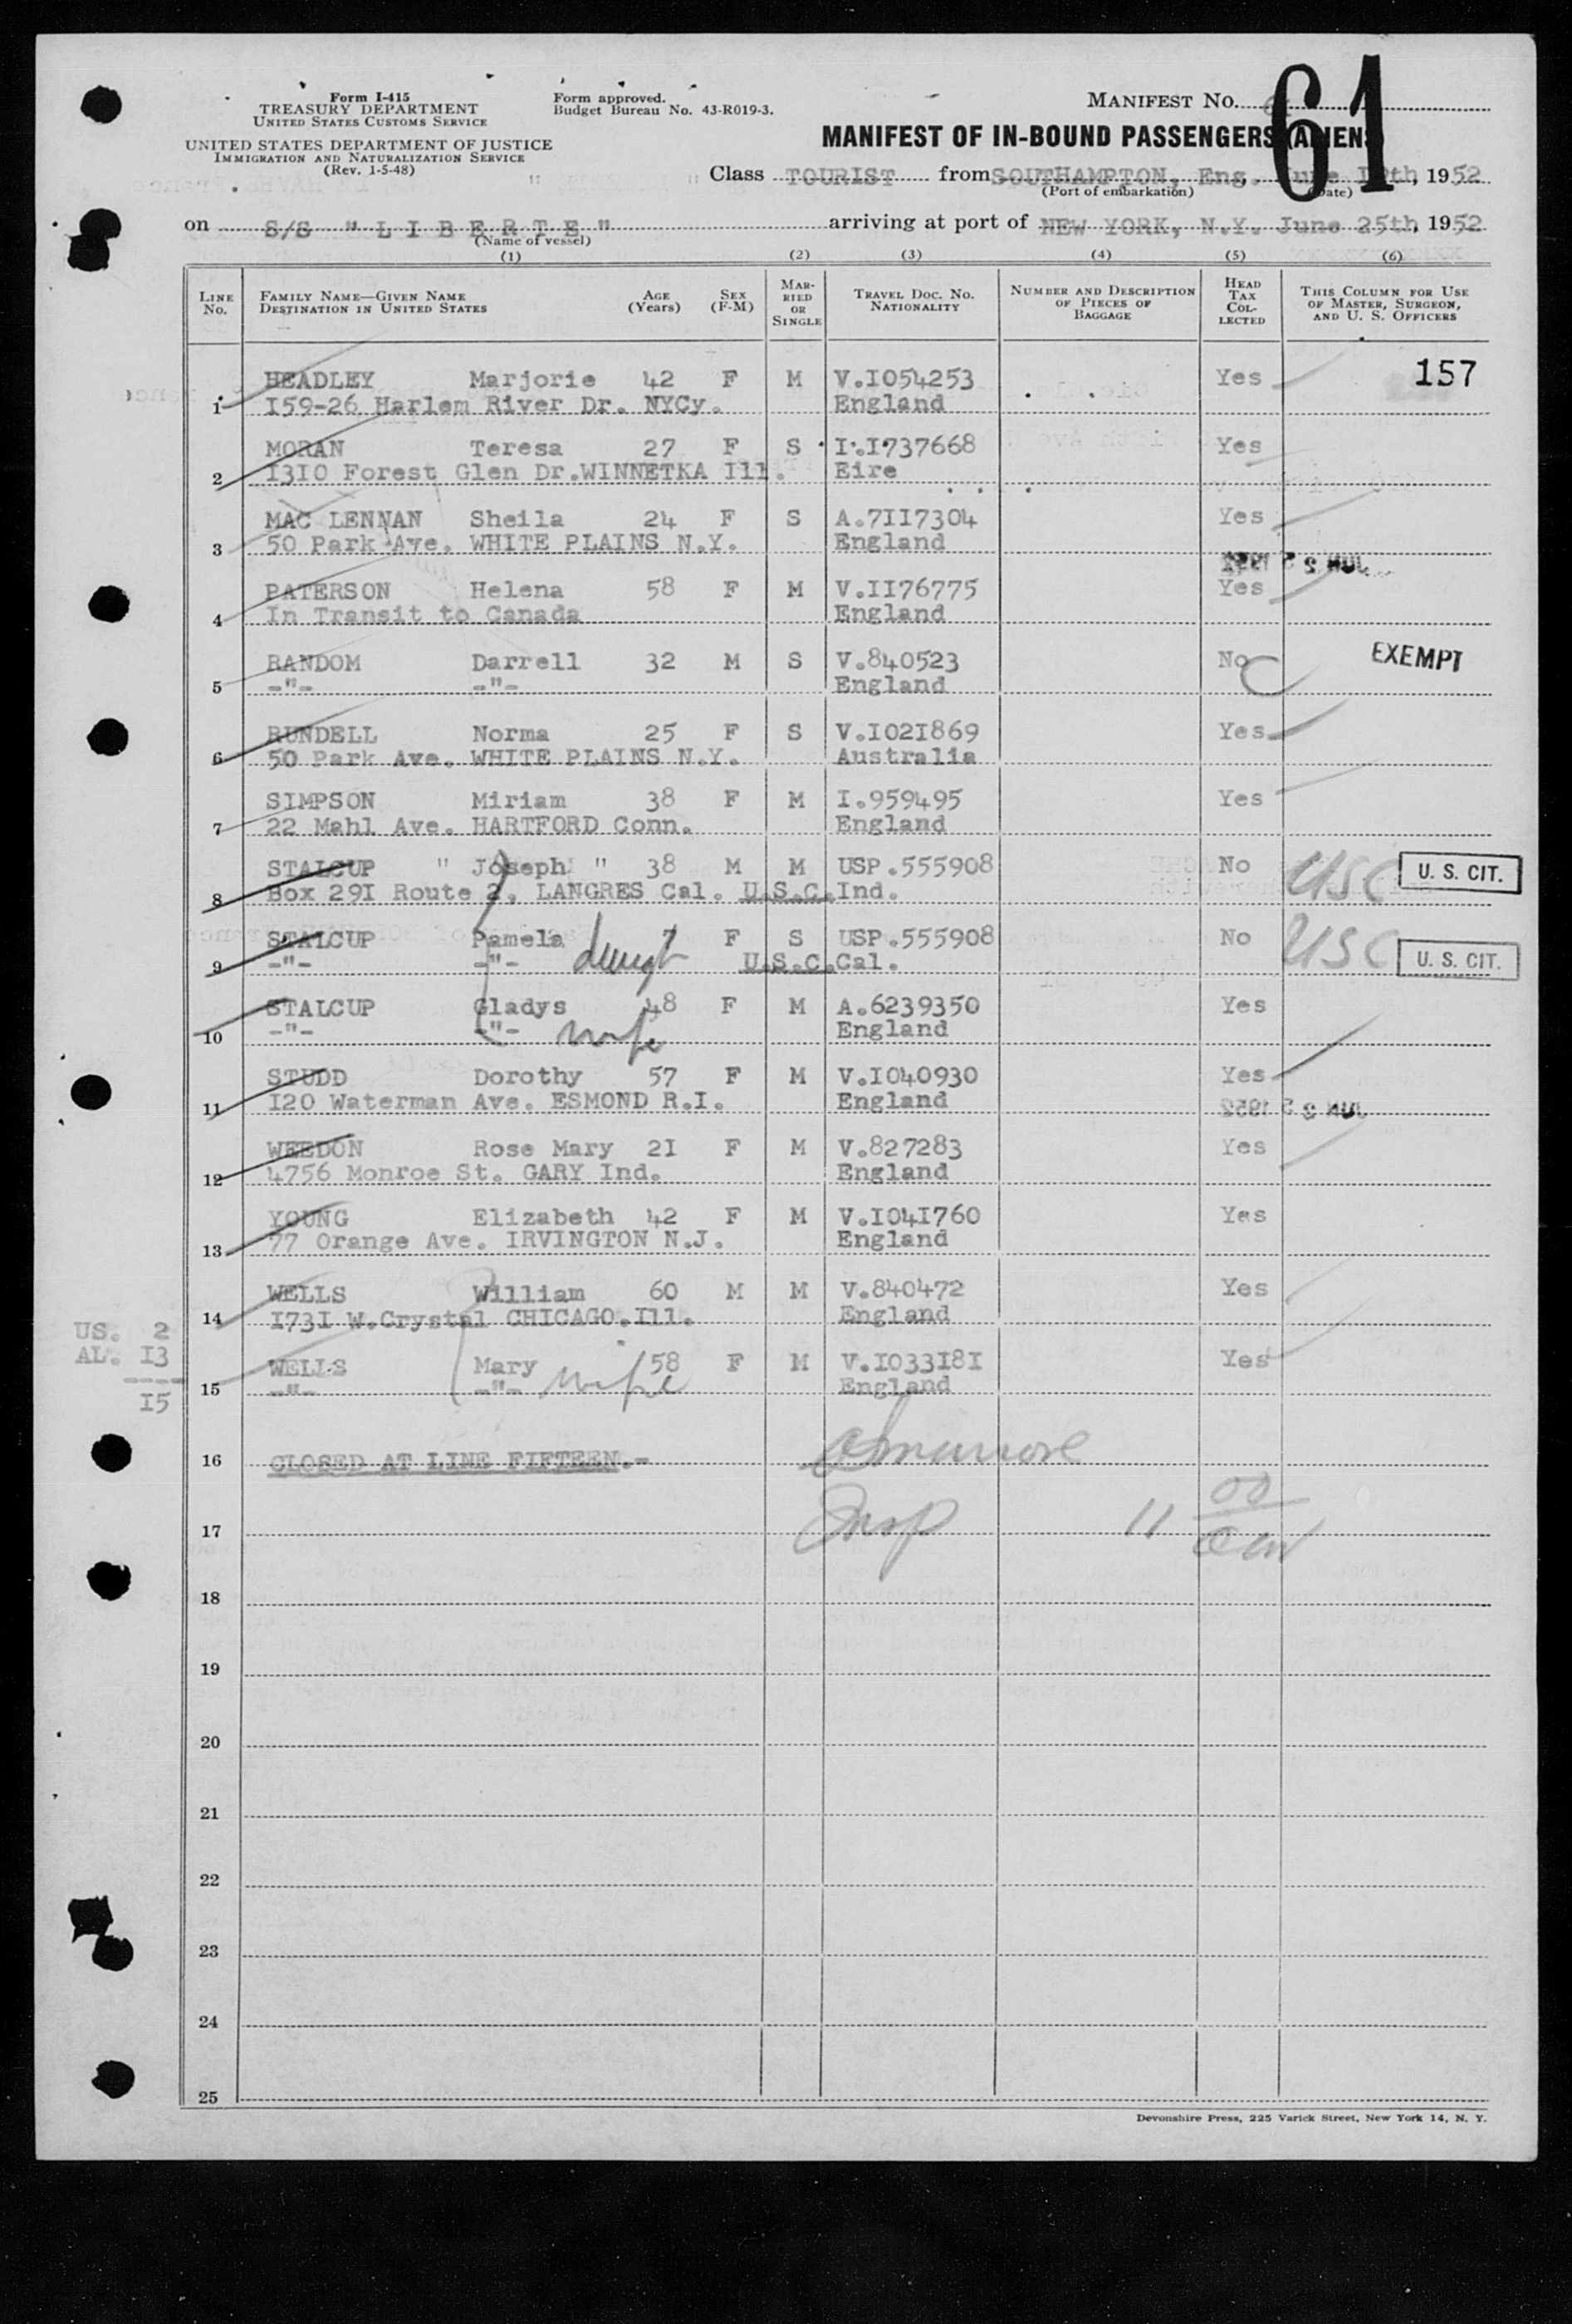 Form I-415
TREASURY DEPARTMENT
UNITED STATES CUSTOMS SERVICE
UNITED STATES DEPARTMENT OF JUSTICE
IMMIGRATION AND NATURALIZATION SERVICE
(Rev. 1-5-48)
Form approved.
Budget Bureau No. 43-R019-3.
MANIFEST NO.
61
MANIFEST OF IN-BOUND PASSENGERS (ALIENS
Class TOURIST from SOUTHAMPTON, Eng. June th, 1952
(Port of embarkation) (Date)
on S/S "LIBERTE" arriving at port of NEW YORK, N.Y. June 25th, 1952
(Name of vessel)
(1) (2) (3) (4) (5) (6)
LINE No. FAMILY NAME—GIVEN NAME DESTINATION IN UNITED STATES AGE (Years) SEX (F-M) MARRIED OR SINGLE TRAVEL DOC. NO. NATIONALITY NUMBER AND DESCRIPTION OF PIECES OF BAGGAGE HEAD TAX COLLECTED THIS COLUMN FOR USE OF MASTER, SURGEON, AND U. S. OFFICERS
HEADLEY Marjorie 42 F M V.I054253 Yes 157
1 I59-26 Harlem River Dr. NYCy. England
MORAN Teresa 27 F S I.I737668 Yes
2 I3IO Forest Glen Dr.WINNETKA Ill. Eire
MAC LENNAN Sheila 24 F S A.7II7304 Yes
3 50 Park Ave. WHITE PLAINS N.Y. England
PATERSON Helena 58 F M V.II76775 Yes
4 In Transit to Canada England
RANDOM Darrell 32 M S V.840523 No EXEMPT
5 -"- -"- England
RUNDELL Norma 25 F S V.I02I869 Yes
6 50 Park Ave. WHITE PLAINS N.Y. Australia
SIMPSON Miriam 38 F M I.959495 Yes
7 22 Mahl Ave. HARTFORD Conn. England
STALCUP " Joseph " 38 M M USP.555908 No USC U. S. CIT.
8 Box 29I Route 2, LANGRES Cal. U.S.C. Ind.
STALCUP Pamela 7 F S USP.555908 No USC U. S. CIT.
9 -"- -"- daugt U.S.C. Cal.
STALCUP Gladys 48 F M A.6239350 Yes
10 -"- -"- wife England
STUDD Dorothy 57 F M V.I040930 Yes
11 I20 Waterman Ave. ESMOND R.I. England
WEEDON Rose Mary 2I F M V.827283 Yes
12 4756 Monroe St. GARY Ind. England
YOUNG Elizabeth 42 F M V.I04I760 Yes
13 77 Orange Ave. IRVINGTON N.J. England
WELLS William 60 M M V.840472 Yes
14 I73I W.Crystal CHICAGO.Ill. England
US. 2
AL. I3
I5
WELLS Mary 58 F M V.I033I8I Yes
15 -"- -"- wife England
16 CLOSED AT LINE FIFTEEN.-
17 Insp 11 00
18
19
20
21
22
23
24
25
Devonshire Press, 225 Varick Street, New York 14, N. Y.